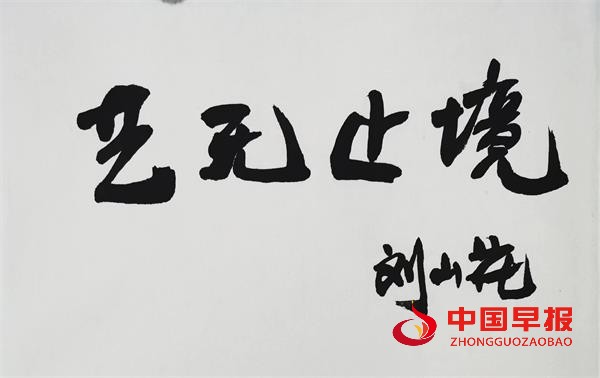 艺无止境
刘山花
中国早报
ZHONGGUOZAOBAO